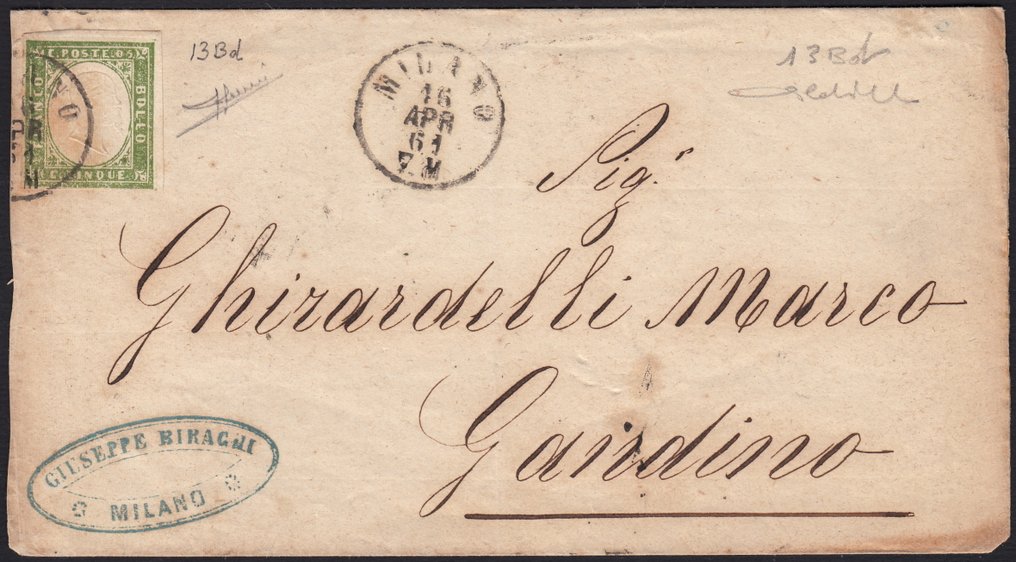 C. POSTE 05
BOLLO
C. CINQUE
13Bd
MILANO
16
APR
61
7. M
13Bd
Sig.r
Ghirardelli Marco
Gandino
GIUSEPPE BIRAGHI
MILANO